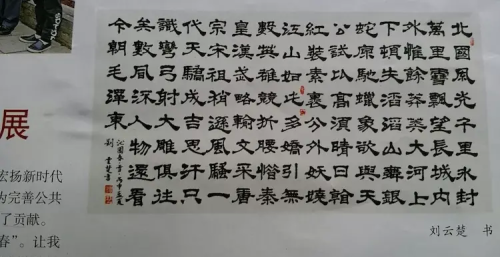 北國風光千里冰封
萬里雪飄望長城内
外惟餘莽莽大河上
下頓失滔滔山舞銀
蛇原馳蠟象欲與天
公試比高須晴日看
紅裝素裹分外妖嬈
江山如此多嬌引無
數英雄競折腰惜秦
皇漢武略輸文采唐
宗宋祖稍遜風騷一
代天驕成吉思汗只
識彎弓射大雕俱往
矣數風流人物還看
今朝毛澤東
沁園春雪丙申孟夏
劉雲楚書
刘云楚 书
展
宏扬新时代
为完善公共
了贡献。
春”。让我